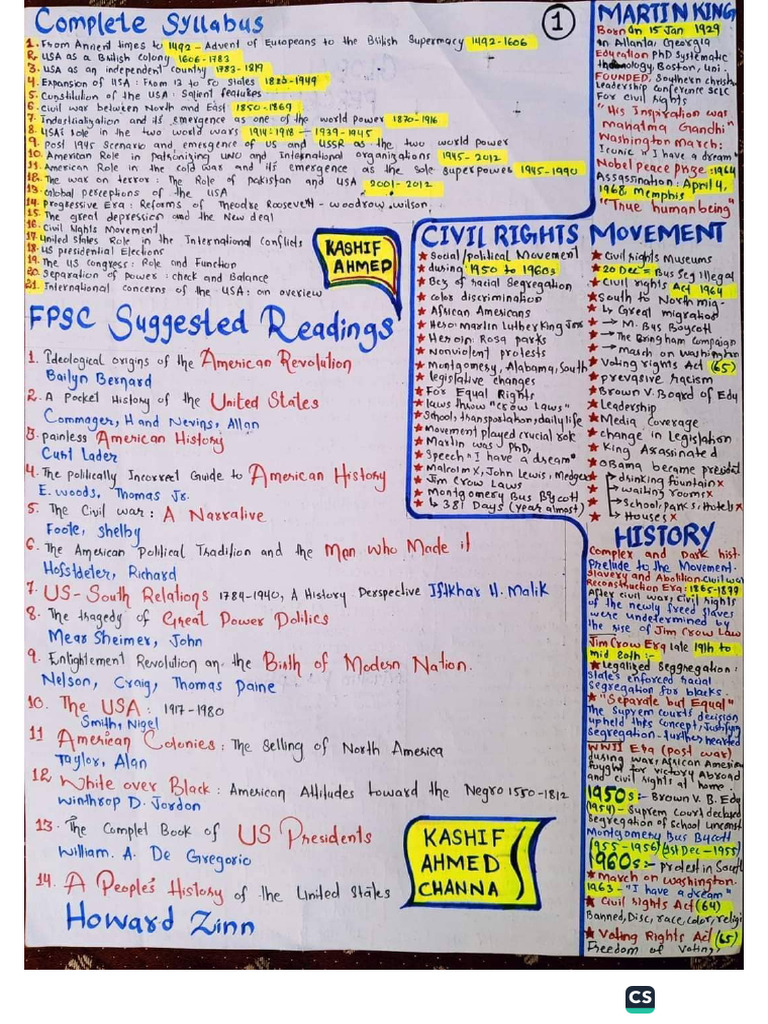 Complete Syllabus
1. From Annent times to 1492 - Advent of Europeans to the British Supermacy 1492-1606
2. USA as a British colony 1606-1783
3. USA as an independent country 1783-1819
4. Expansion of USA: From 13 to 50 states 1820-1949
5. Constitution of the USA: Salient features
6. Civil war between North and East 1850-1869
7. Industrialization and its emergence as one of the world power 1870-1916
8. USA's role in the two world wars 1914-1918 - 1939-1945
9. Post 1945 Scenario and emergence of US and USSR as the two world power
10. American Role in patronizing UNO and International organizations 1945-2012
11. American Role in the cold war and its emergence as the sole superpower 1945-1990
12. The war on terror: The Role of pakistan and USA 2001-2012
13. Global perceptions of the USA
14. Progressive Era: Reforms of Theodre Roosevelt - woodrow wilson
15. The great depression and the New deal
16. Civil Rights Movement
17. United states Role in the International Conflicts
18. US presidential Elections
19. The US congress: Role and Function
20. Separation of power: check and Balance
21. International concerns of the USA: an overview
KASHIF
AHMED
1
FPSC Suggested Readings
1. Ideological origins of the American Revolution
Bailyn Bernard
2. A Pocket History of the United States
Commager, H and Nevins, Allan
3. painless American History
Curt Lader
4. The politically Incorrect Guide to American History
E. woods, Thomas Jr.
5. The Civil war: A Narrative
Foote, Shelby
6. The American Political Tradition and the Men who Made it
Hofstdeter, Richard
7. US-South Relations 1784-1940, A History Derspective Iftkhar H. Malik
8. The tragedy of Great Power Politics
Mear Sheimer, John
9. Enligtement Revolution an the Birth of Modern Nation.
Nelson, Craig, Thomas Paine
10. The USA: 1917-1980
Smith, Nigel
11 American Colonies: The Selling of North America
Taylor, Alan
12 White over Black: American Attitudes toward the Negro 1550-1812
Winthrop D. Jordon
13. The Complet Book of US Presidents
William. A. De Gregorio
14. A People's History of the United States
Howard Zinn
KASHIF
AHMED
CHANNA
MARTIN KING
Born on 15 Jan 1929
in Atlanta, Georgia
Education PhD Systematic
theology, Boston, Uni.
FOUNDED, Southern christn
Leadership conference SCLC
For Civil rights
"His Inspiration was
Mahatma Gandhi"
Washington March:
Iconic "I have a dream"
Nobel Peace Prize: 1964
Assassination: April 4,
1968, Memphis
"True humanbeing"
CIVIL RIGHTS MOVEMENT
Social/political Movement
during 1950 to 1960s
Bcz of racial Segregation
color discrimination
African Americans
Hero: Marlin Luther King Jnr
Heroin: Rosa parks
Nonviolent protests
Montgomery, Alabama, South
legislative changes
For Equal Rights
laws throw "crow Laws"
School, transportation, daily life
Movement played crucial role
Martin was PhD,
Speech "I have a dream"
Malcolm x, John Lewis, Medger
Jim Crow Laws
Montgomery Bus Bycott
381 Days (year almost)
Civil rights Museums
20 Dec = Bus Seg Illegal
Civil rights Act 1964
South to North mig-
Great migration
M. Bus Boycott
The Bringham Campaign
march on washington
Voting rights Act (65)
prevasive racism
Brown V. Board of Edy
Leadership
Media coverage
change in Legislation
King Assasinated
Obama became president
drinking fountain x
waiting rooms x
School, parks, Hotels x
Houses x
HISTORY
Complex and Dark hist-
Prelude to the Movement.
Slavery and Abolition-civil war
Reconstruction Era: 1865-1877
After civil war, civil rights
of the newly freed slaves
were undetermined by
the rise of Jim Crow Law
Jim Crow Era late 19th to
mid 20th :-
Legalized Seggregation:
State's enforced racial
Segregation for blacks.
"Separate but Equal"
The Suprem courts decision
upheld this concept, Justifying
segregation - further hearted
WWII Era (post war)
during war, African American
fought for victory Abroad
and civil rights at home.
1950s:- Brown V. B. Edy
(1954) - Suprem Court declared
Segregation of School unconst
Montgomery Bus Bycott
(1955-1956) (1st Dec-1955)
1960s:- protest in South
march on washington.
1963 - "I have a dream"
Civil rights Act (64)
Banned, Disc, race, color, religi
Voting Rights Act (65)
Freedom of Voting,
CS